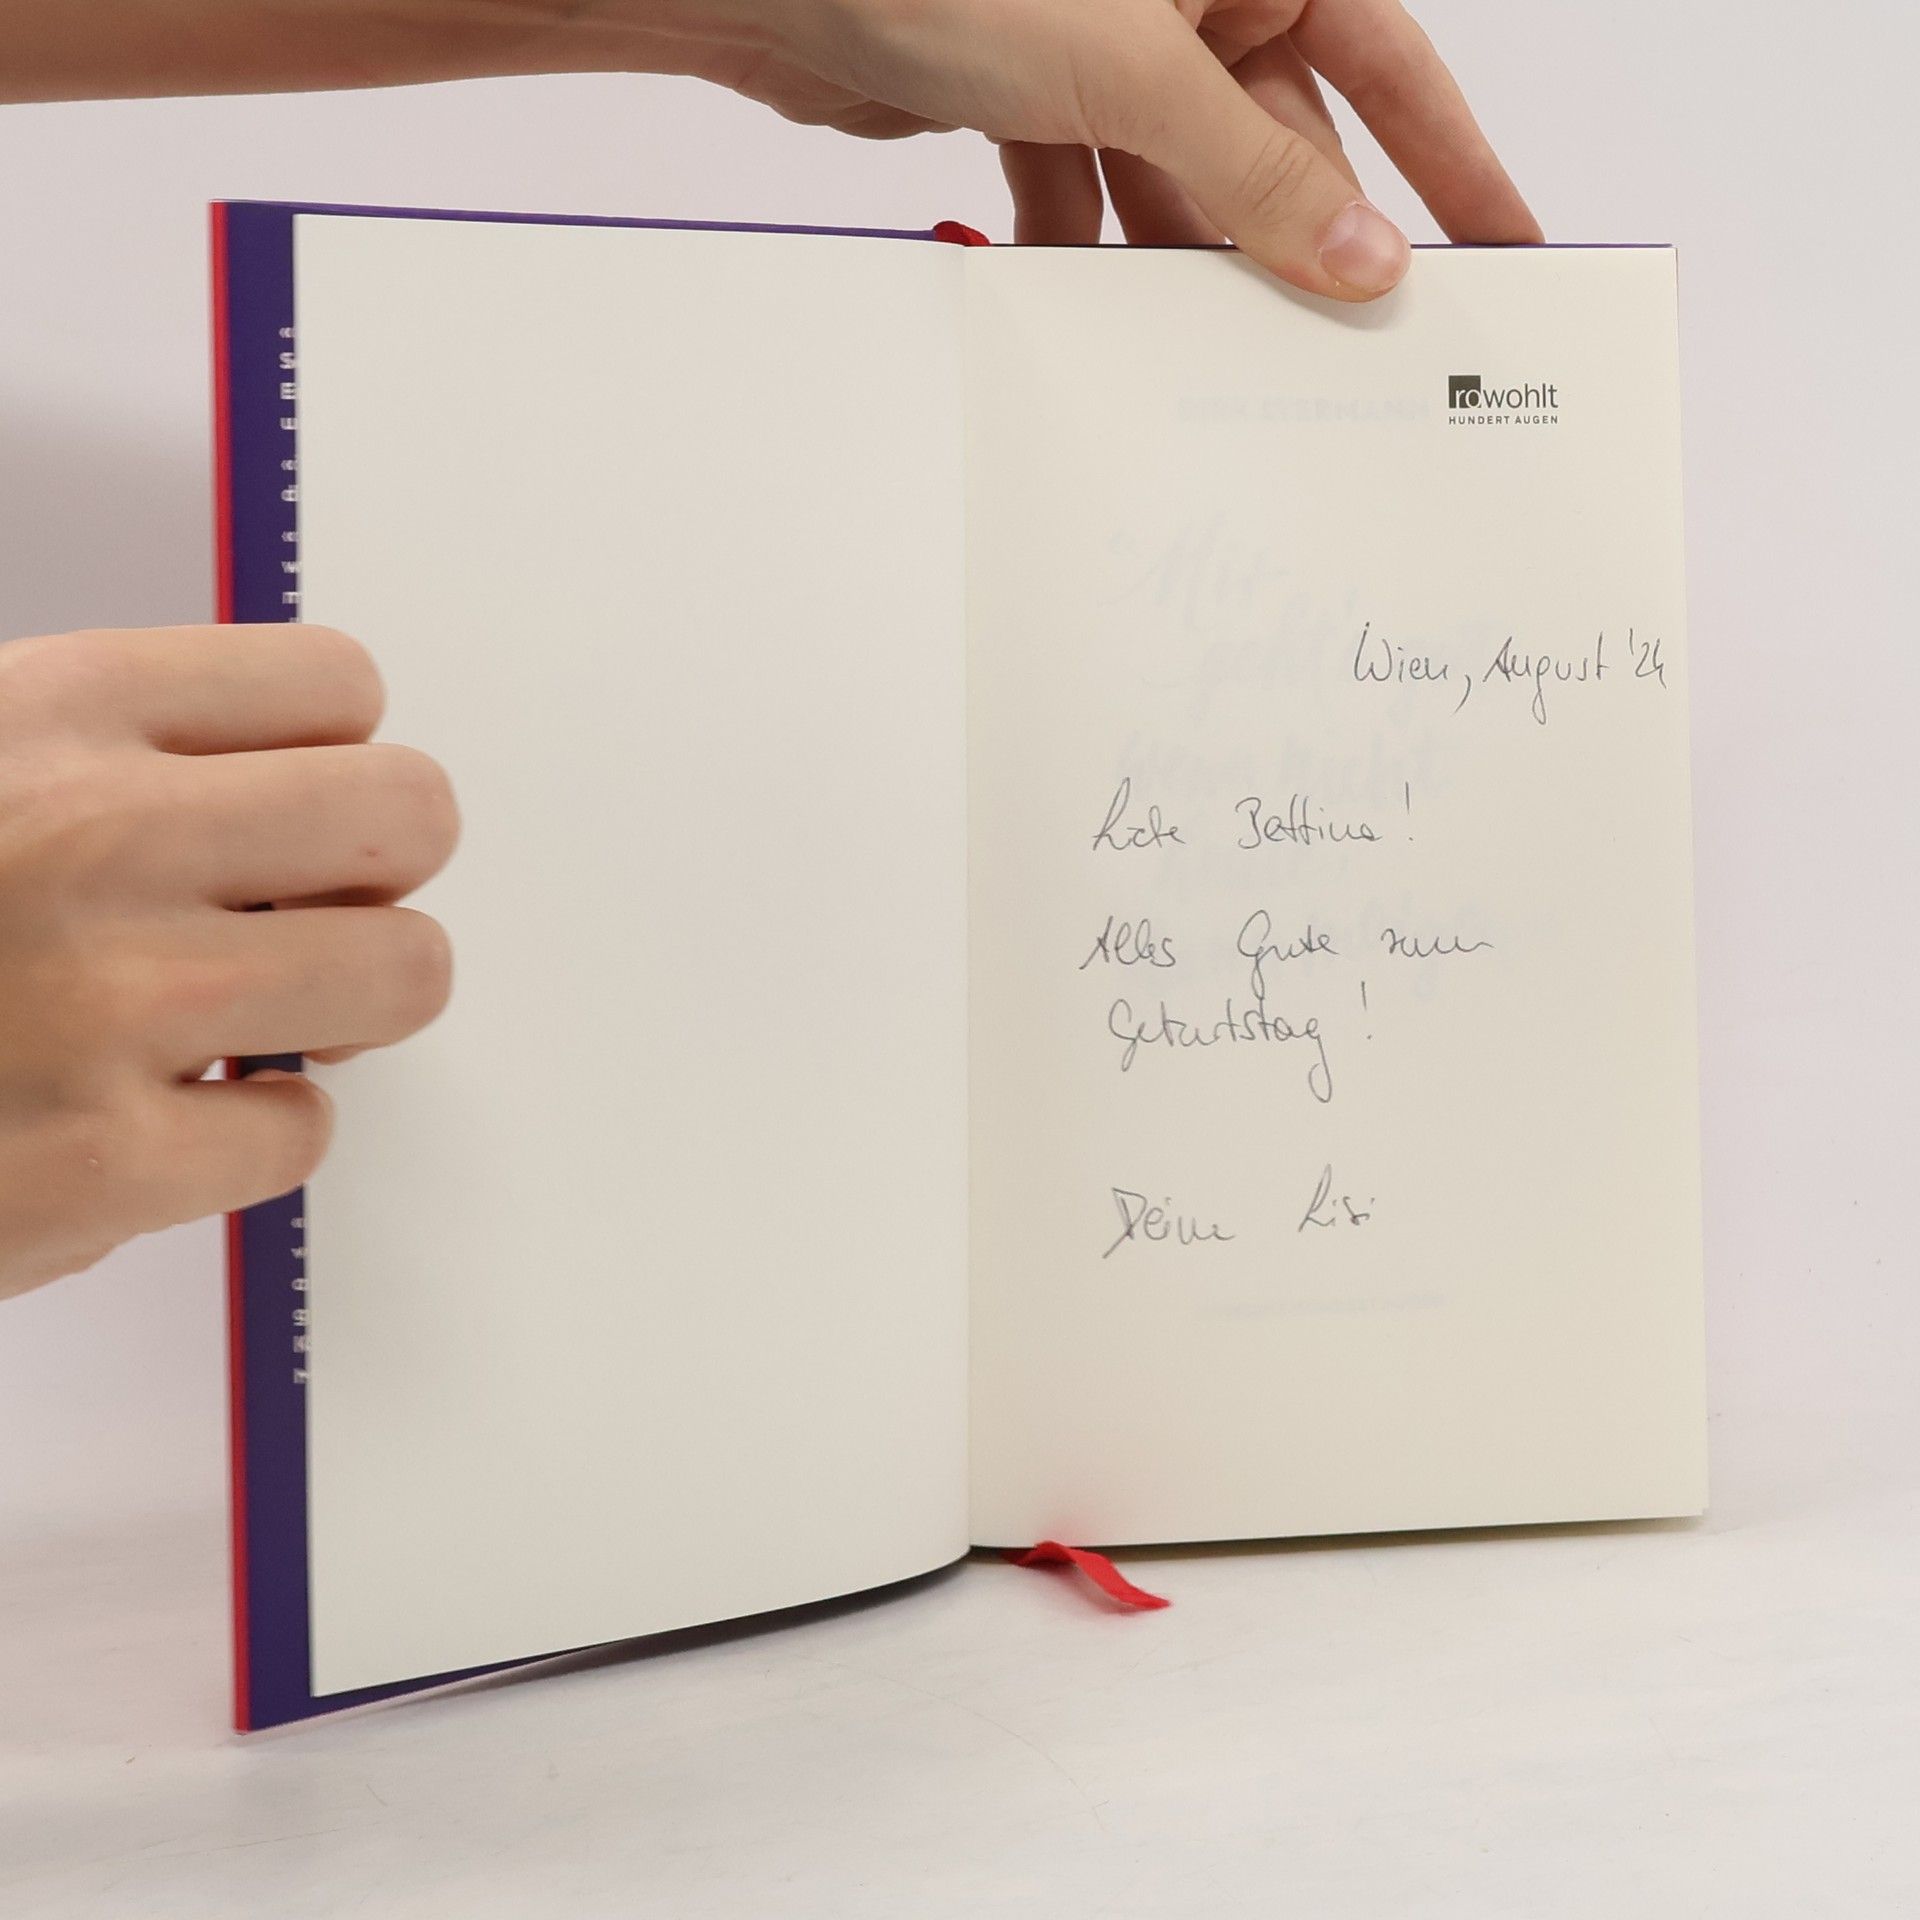 rowohlt
HUNDERT AUGEN
Wien, August '24
Liebe Bettina!
Alles Gute zum
Geburtstag!
Deine Lisi